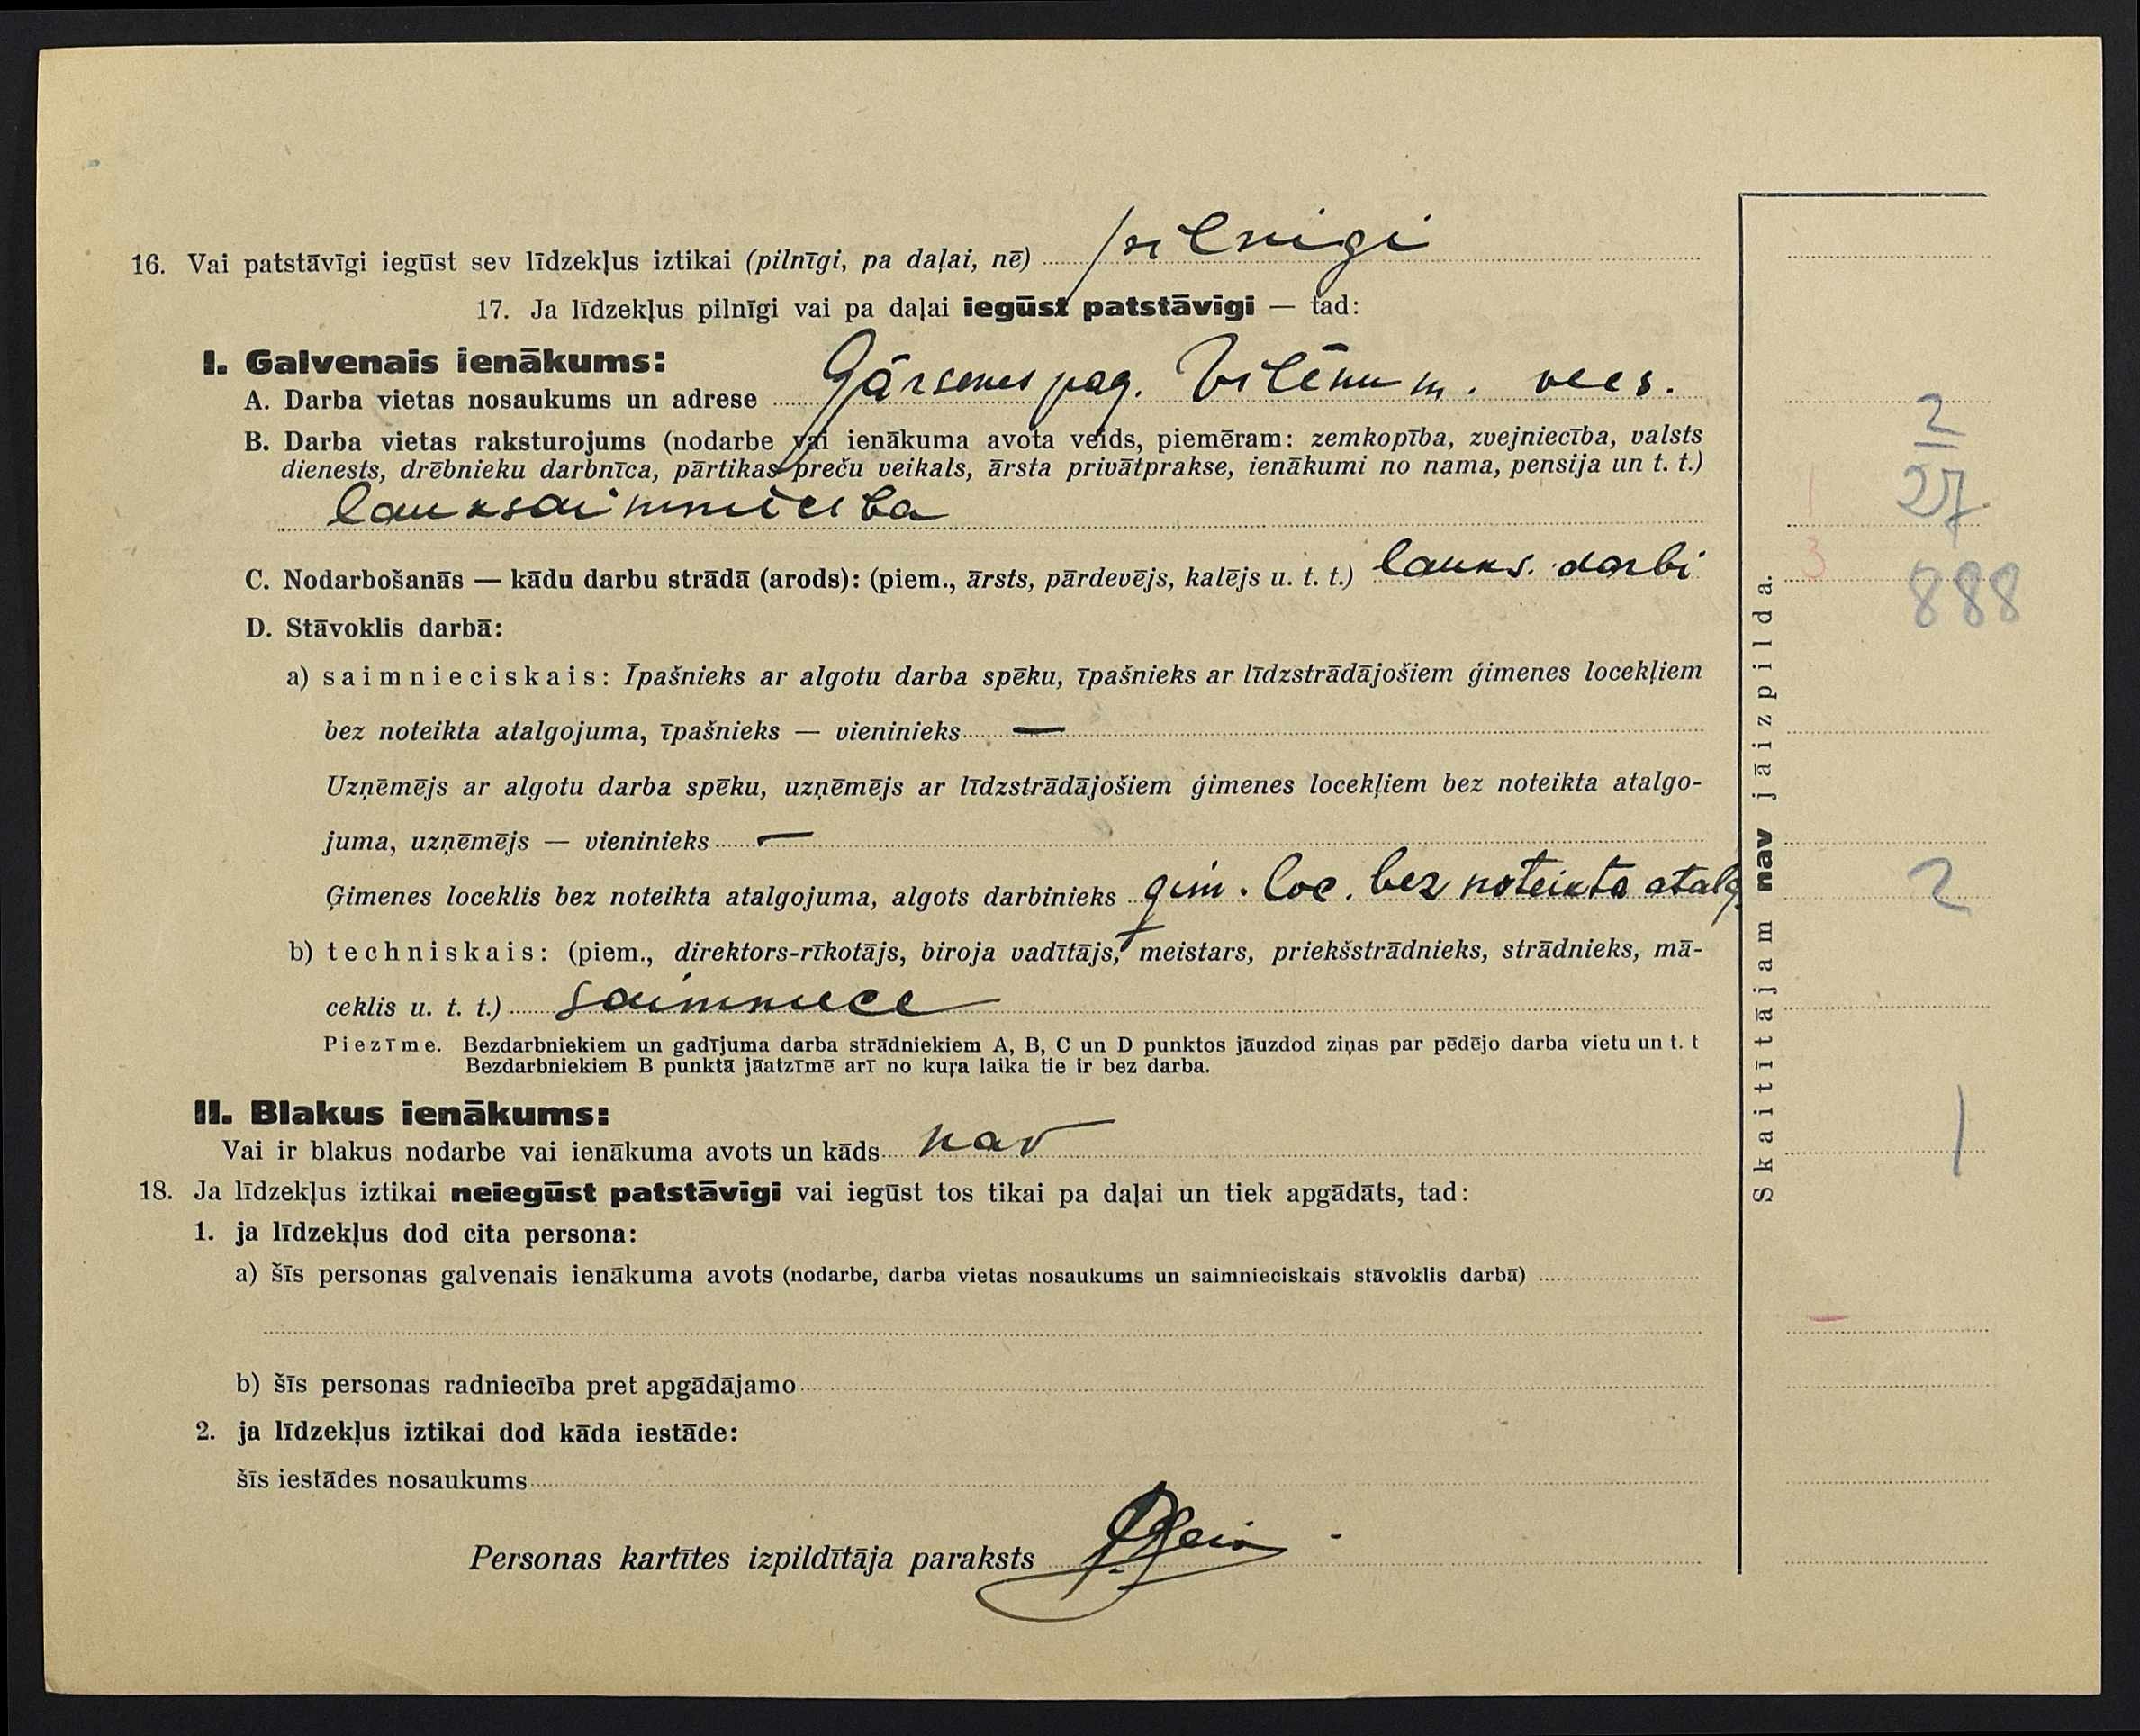 16. Vai patstāvīgi iegūst sev līdzekļus iztikai (pilnīgi, pa daļai, nē) pilnigi
17. Ja līdzekļus pilnīgi vai pa daļai iegūst patstāvīgi — tad:
I. Galvenais ienākums:
A. Darba vietas nosaukums un adrese Gārsenes pag. Vilēnu m. vecs.
B. Darba vietas raksturojums (nodarbe vai ienākuma avota veids, piemēram: zemkopība, zvejniecība, valsts
dienests, drēbnieku darbnīca, pārtikas preču veikals, ārsta privātprakse, ienākumi no nama, pensija un t. t.)
lauksaimniecība
C. Nodarbošanās — kādu darbu strādā (arods): (piem., ārsts, pārdevējs, kalējs u. t. t.) lauks. darbi
D. Stāvoklis darbā:
a) saimnieciskais: Īpašnieks ar algotu darba spēku, īpašnieks ar līdzstrādājošiem ģimenes locekļiem
bez noteikta atalgojuma, īpašnieks — vieninieks —
Uzņēmējs ar algotu darba spēku, uzņēmējs ar līdzstrādājošiem ģimenes locekļiem bez noteikta atalgo-
juma, uzņēmējs — vieninieks —
Ģimenes loceklis bez noteikta atalgojuma, algots darbinieks ģim. loc. bez noteikta atalg.
b) techniskais: (piem., direktors-rīkotājs, biroja vadītājs, meistars, priekšstrādnieks, strādnieks, mā-
ceklis u. t. t.) saimniece
Piezīme. Bezdarbniekiem un gadījuma darba strādniekiem A, B, C un D punktos jāuzdod ziņas par pēdējo darba vietu un t. t
Bezdarbniekiem B punktā jāatzīmē arī no kuŗa laika tie ir bez darba.
II. Blakus ienākums:
Vai ir blakus nodarbe vai ienākuma avots un kāds nav
18. Ja līdzekļus iztikai neiegūst patstāvīgi vai iegūst tos tikai pa daļai un tiek apgādāts, tad:
1. ja līdzekļus dod cita persona:
a) šīs personas galvenais ienākuma avots (nodarbe, darba vietas nosaukums un saimnieciskais stāvoklis darbā)
b) šīs personas radniecība pret apgādājamo
2. ja līdzekļus iztikai dod kāda iestāde:
šīs iestādes nosaukums
Personas kartītes izpildītāja paraksts
Skaitītājam nav jāizpilda.
2
27
1
3
888
2
1